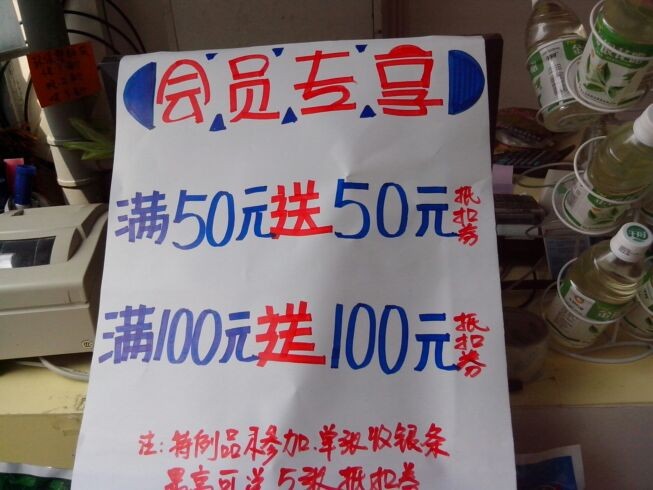 会员专享
满50元送50元抵扣券
满100元送100元抵扣券
注:特例品不参加.单张收银条
最高可送5张抵扣券